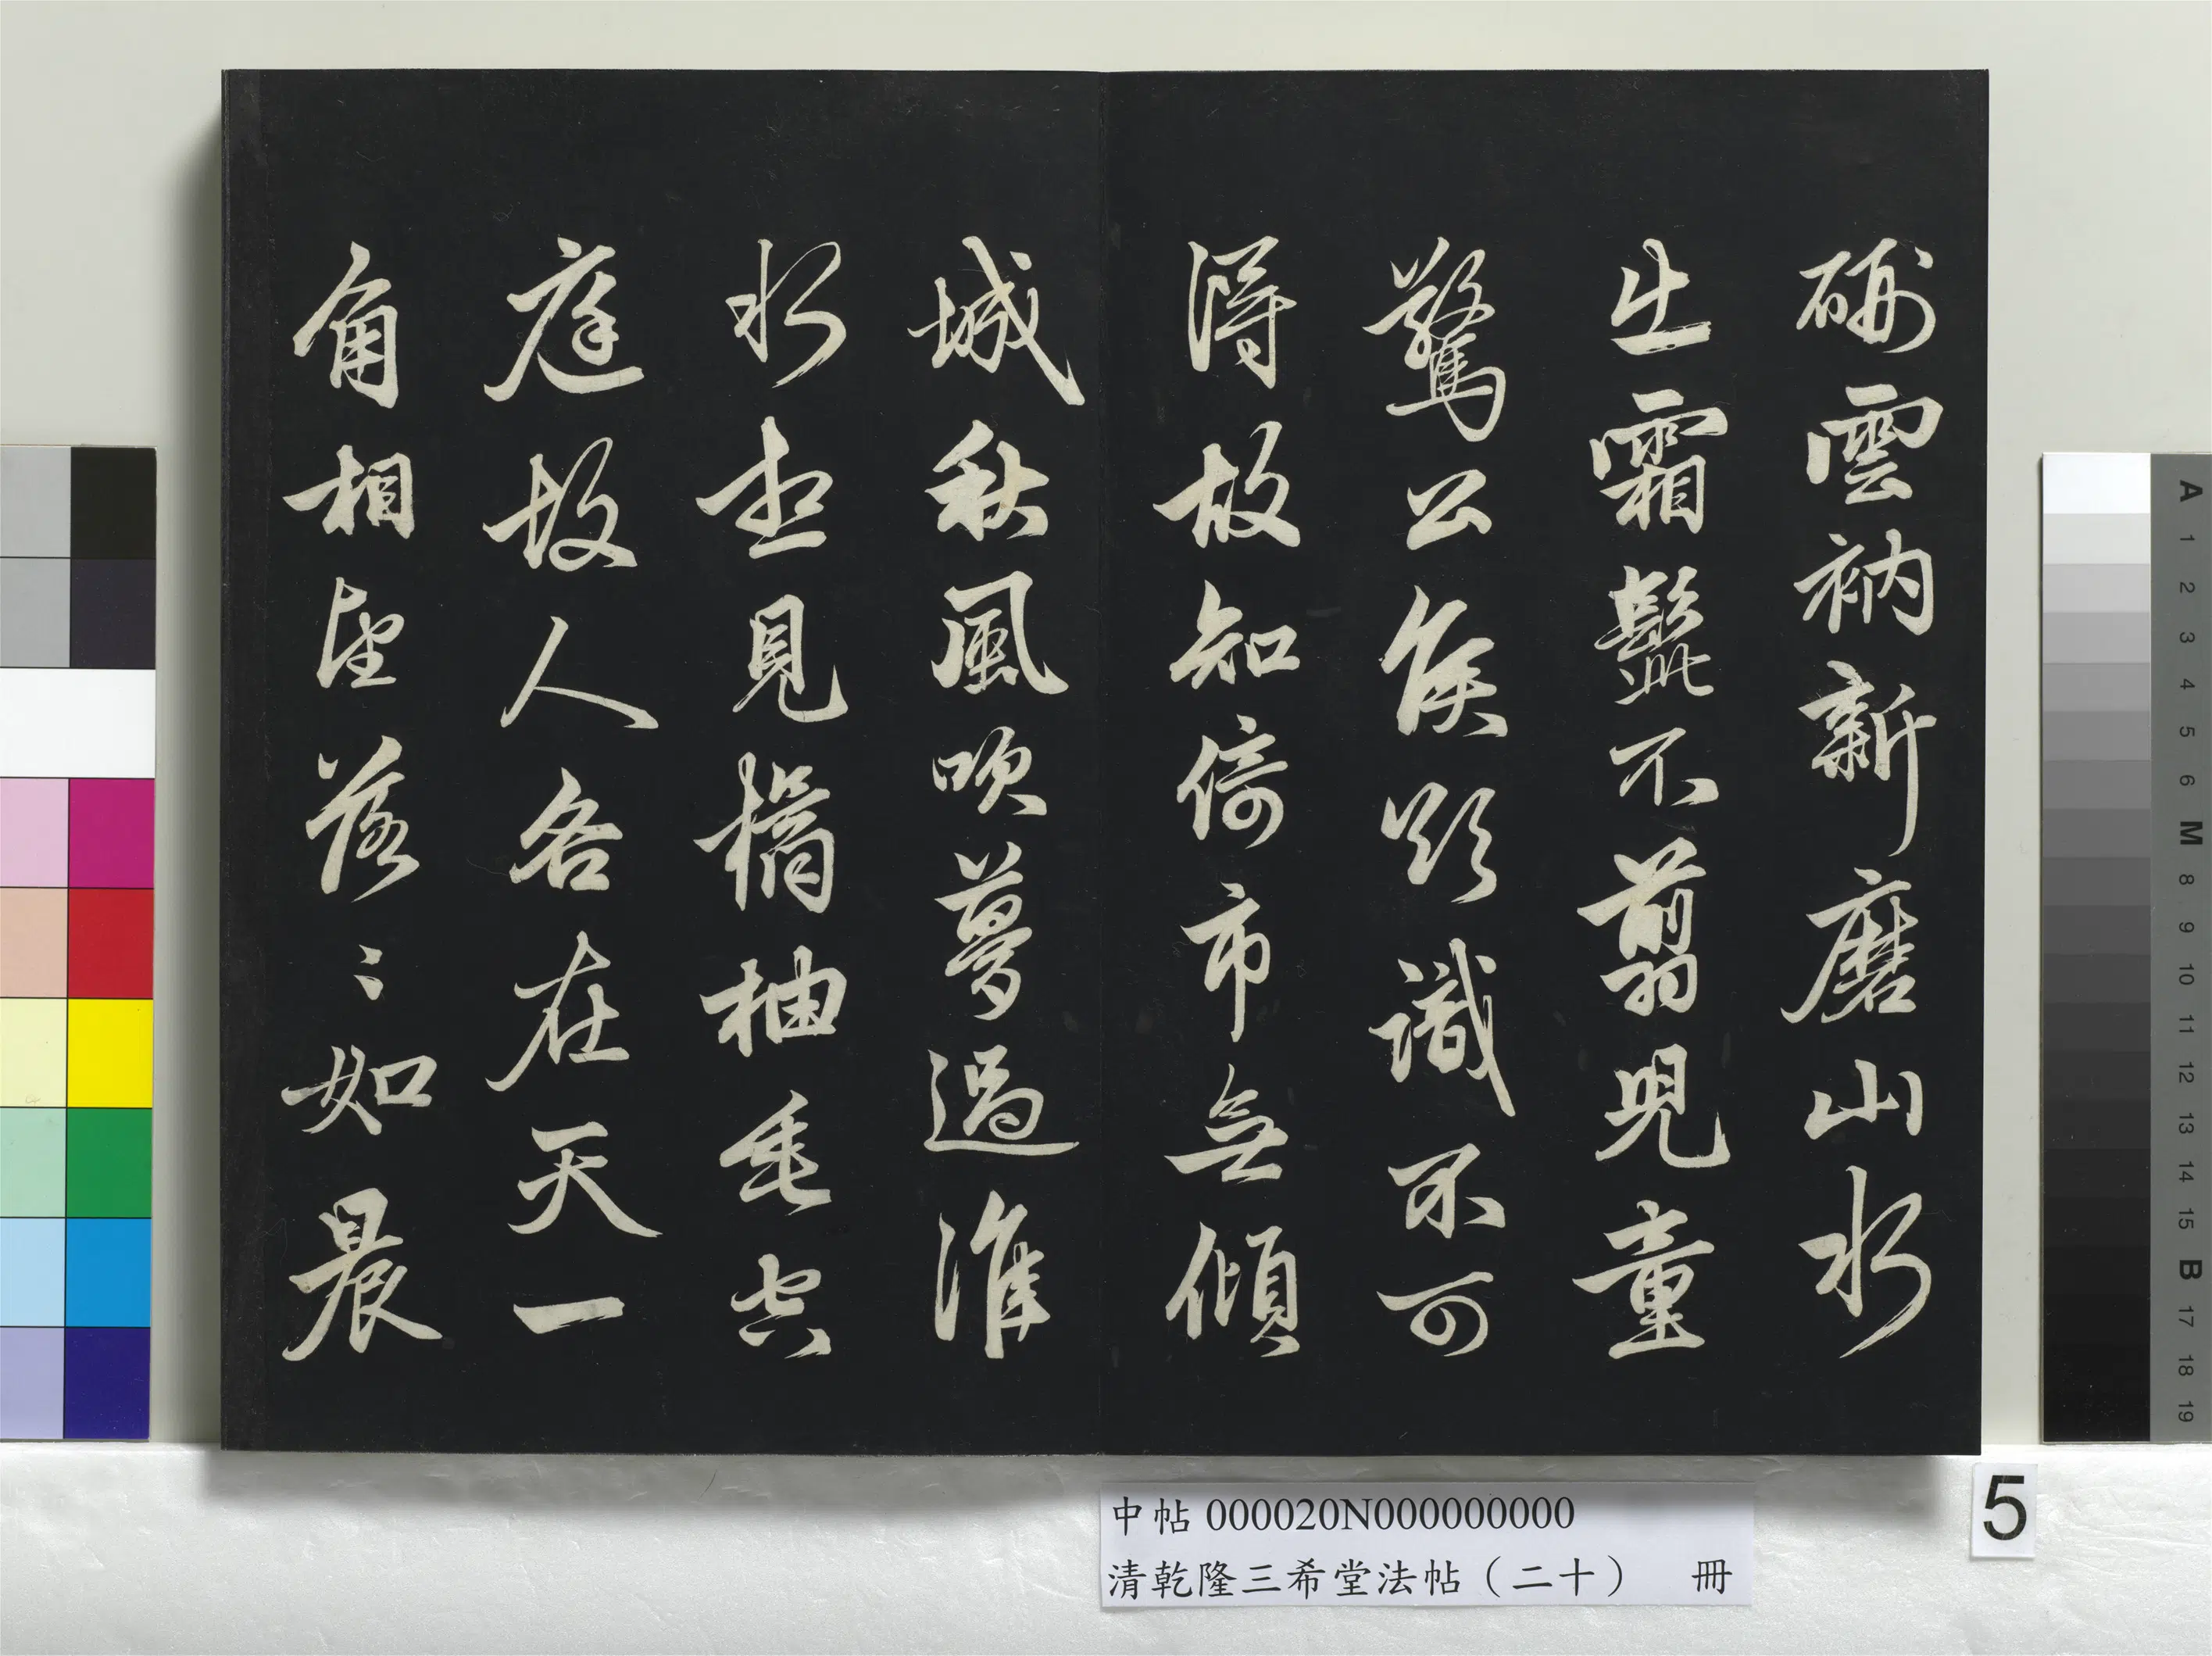 硎雲衲新磨山水
出霜髭不翦兒童
驚公侯欲識不可
得故知倚市無傾
城秋風吹夢過淮
水想見橘柚垂空
庭故人各在天一
角相望落〻如晨
中帖 000020N000000000
清乾隆三希堂法帖（二十） 冊
5
A
1
2
3
4
5
6
M
8
9
10
11
12
13
14
15
B
17
18
19